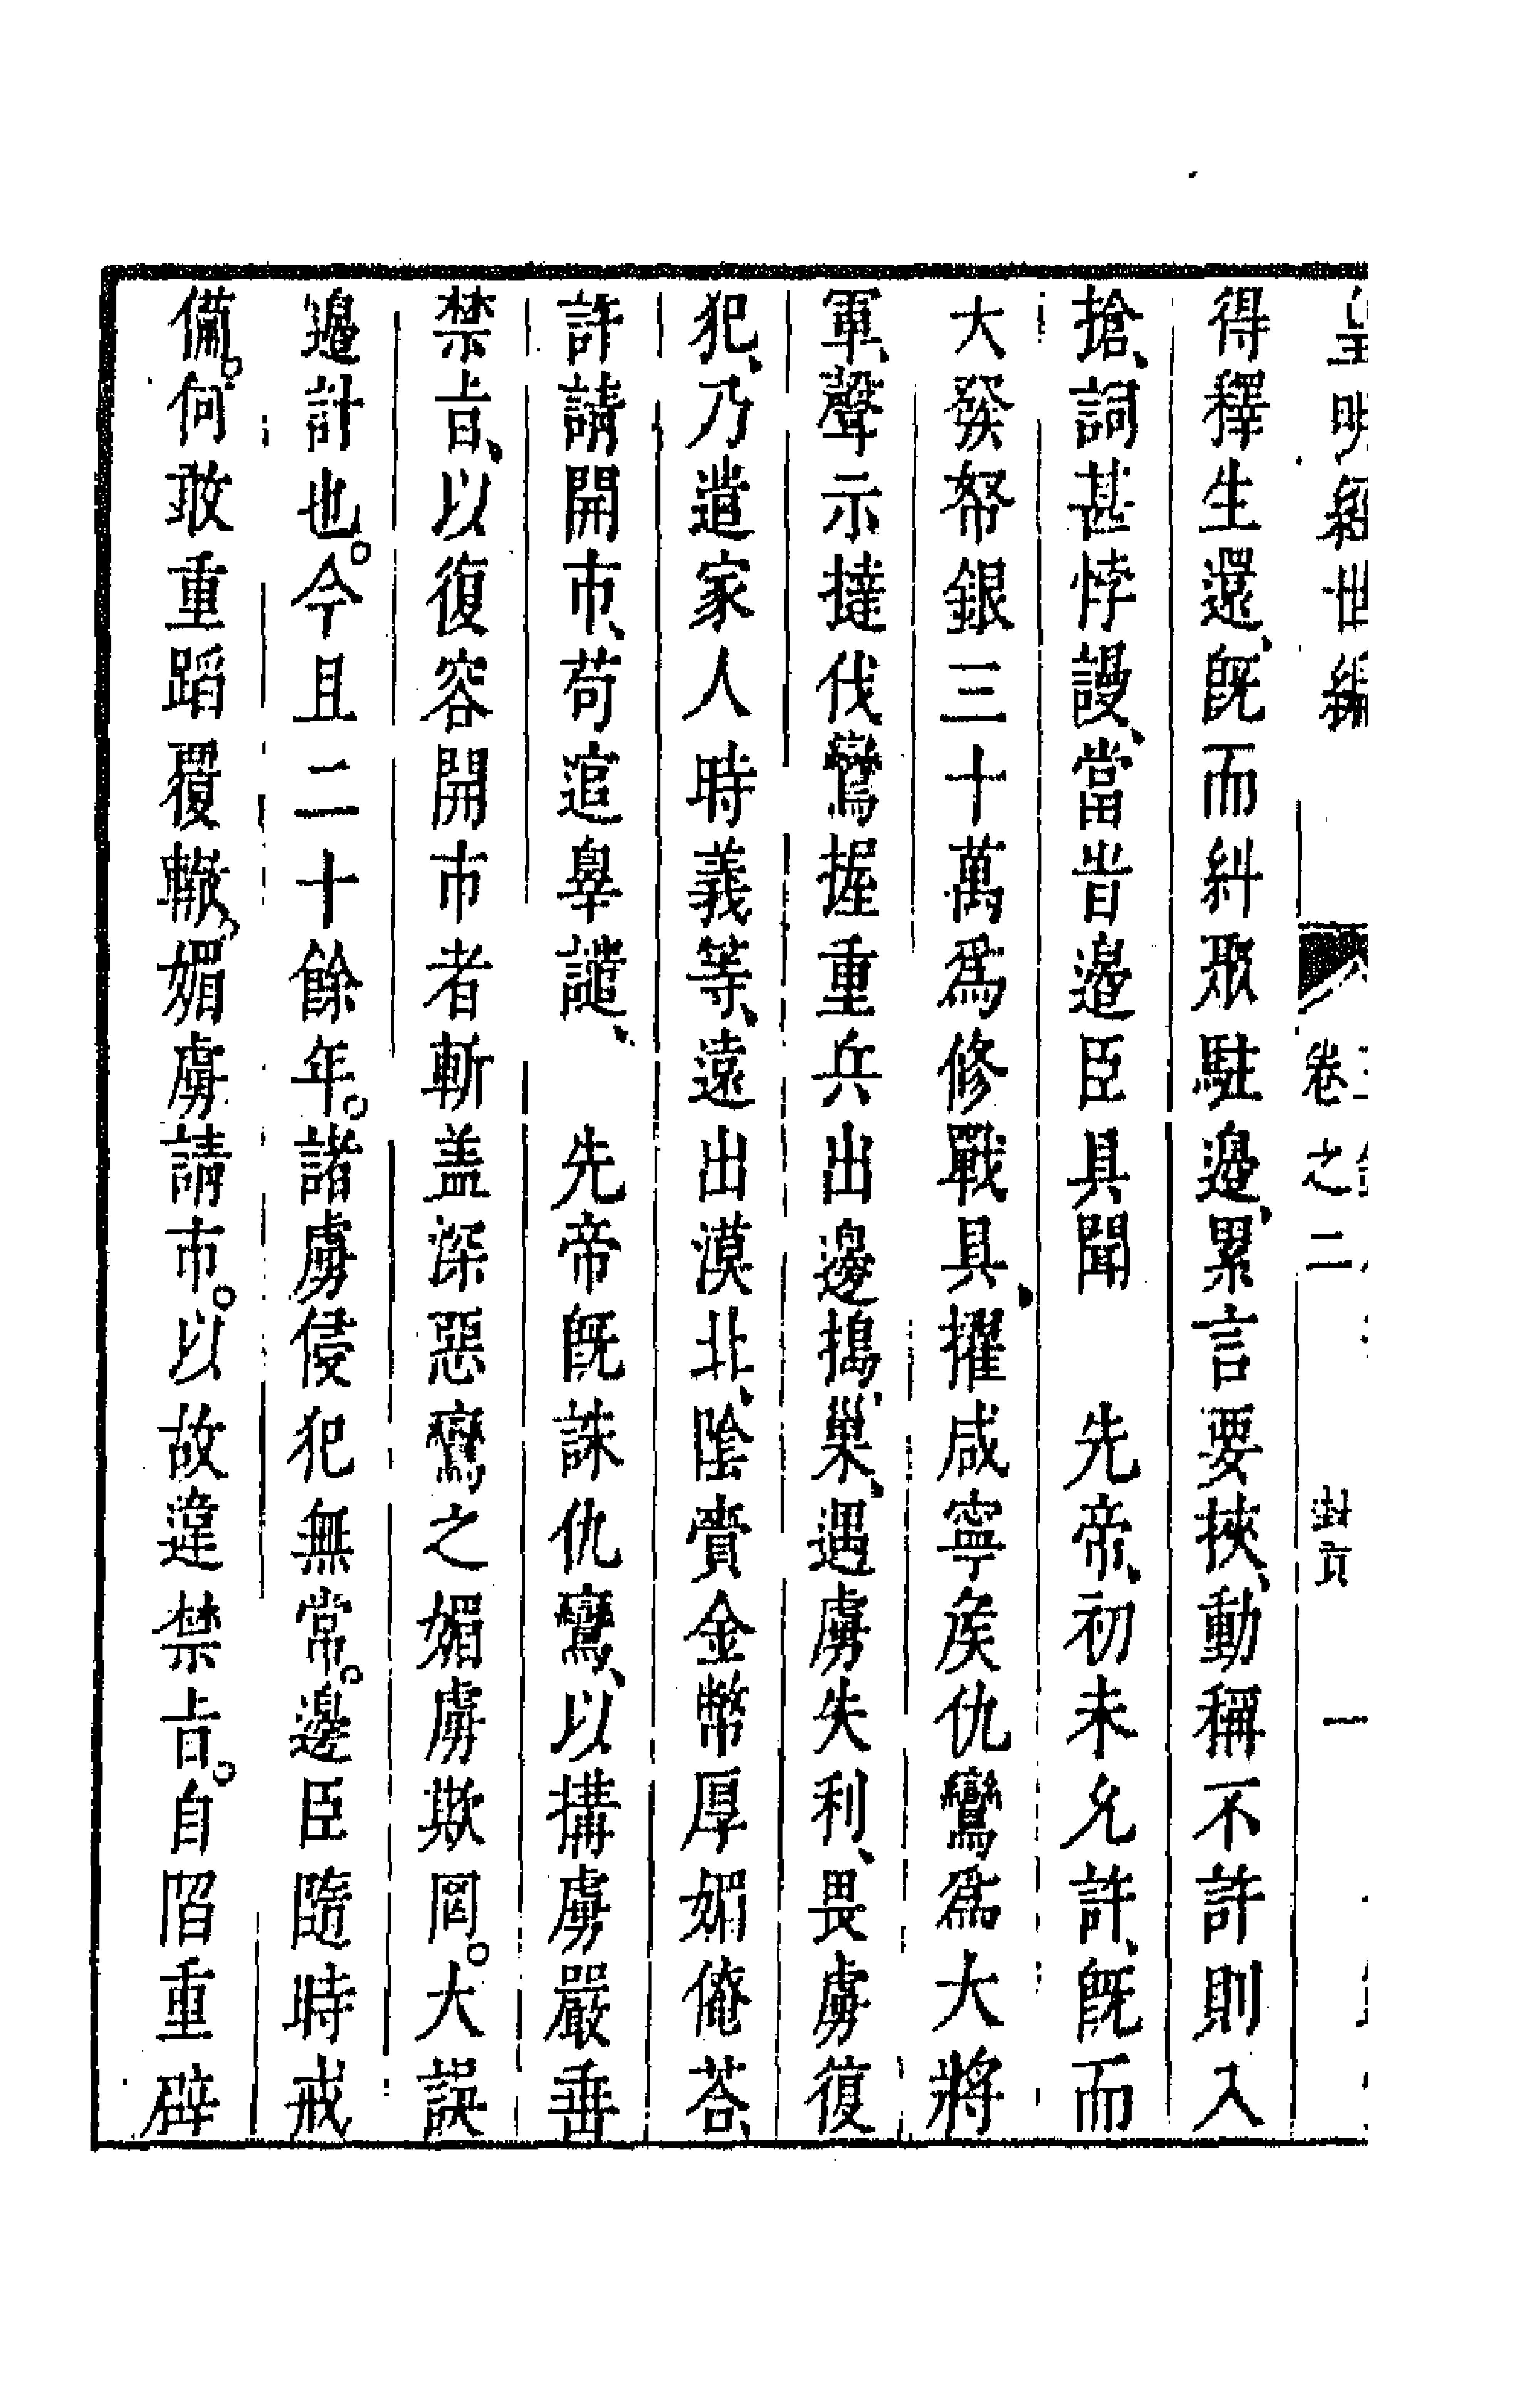 皇明經世編
卷之二
封貢
一
得釋生還、旣而糾聚駐邊、累言要挾、動稱不許則入
搶、詞甚悖謾、當昔邉臣具聞　先帝、初未允許、旣而
大發帑銀三十萬爲修戰具、擢咸寧矦仇鸞爲大將
軍、聲示撻伐、鸞握重兵出邊搗巢、遇虜失利、畏虜復
犯、乃遣家人時義等、遠出漠北、陰賫金幣厚媚俺荅、
許請開市、茍逭辠譴、　先帝旣誅仇鸞、以搆虜嚴垂
禁㫖、以復容開市者斬盖深惡鸞之媚虜欺罔。大誤
邉計也。今且二十餘年。諸虜侵犯無常。邊臣隨時戒
備。何敢重蹈覆轍。媚虜請市。以故違禁㫖。自陷重辟